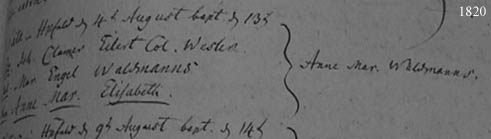 1820
Unfeld d 4th August bapt. d 13t
Joh. Clames Eilert Col. Westen
Mar. Engel Waldmanns
Anne Mar. Elisabeth.
Anne Mar. Waldmanns.
Unfeld d 9th August bapt. d 14t